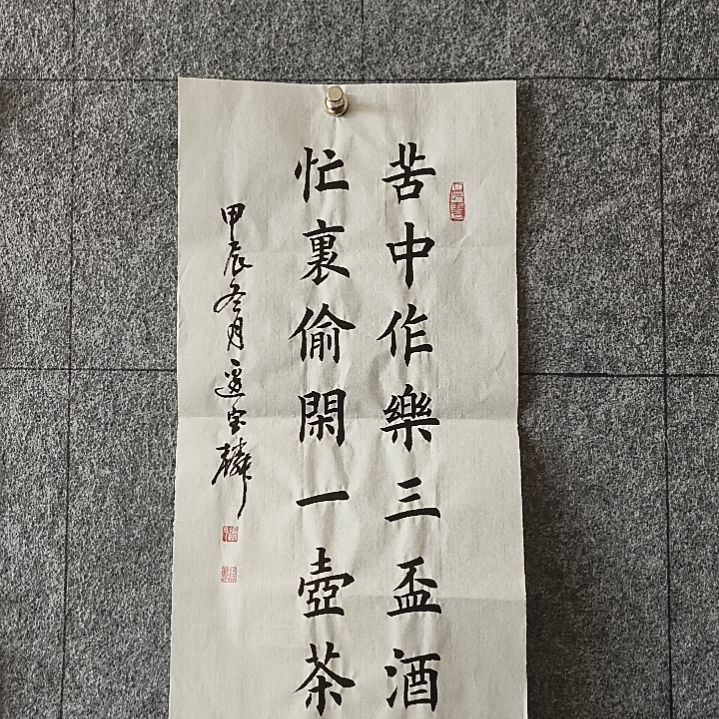 苦中作樂三盃酒
忙裏偷閑一壺茶
甲辰冬月邊宝麟